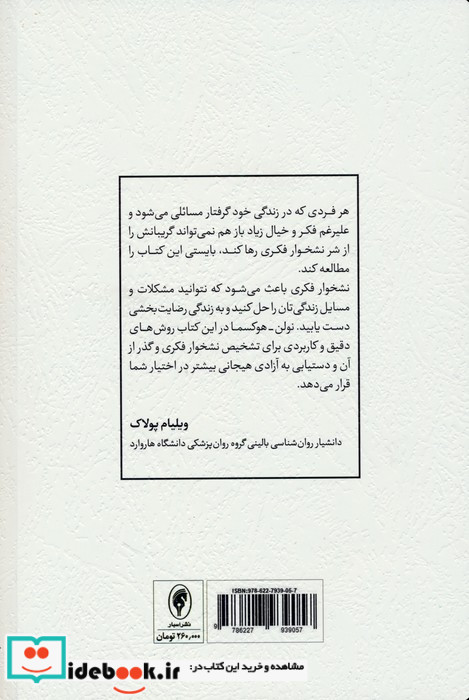 هر فردی که در زندگی خود گرفتار مسائلی می‌شود و
علیرغم فکر و خیال زیاد باز هم نمی‌تواند گریبانش را
از شر نشخوار فکری رها کند، بایستی این کتاب را
مطالعه کند.
نشخوار فکری باعث می‌شود که نتوانید مشکلات و
مسایل زندگی‌تان را حل کنید و به زندگی رضایت‌بخشی
دست یابید. نولن ـ هوکسما در این کتاب روش‌های
دقیق و کاربردی برای تشخیص نشخوار فکری و گذر از
آن و دستیابی به آزادی هیجانی بیشتر در اختیار شما
قرار می‌دهد.
ویلیام پولاک
دانشیار روان‌شناسی بالینی گروه روان‌پزشکی دانشگاه هاروارد
ISBN: 978-622-7939-05-7
9 786227 939057
نشر اسبار
۲۶۰,۰۰۰ تومان
مشاهده و خرید این کتاب در:
idebook.ir